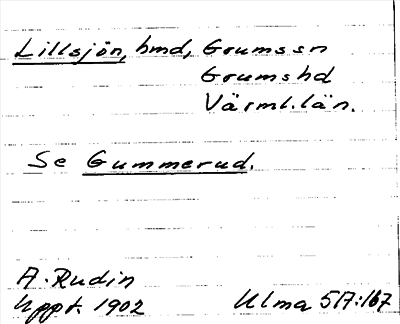 Lillsjön, hmd, Grumssn
Grumshd
Värml.län.
Se Gummerud.
A. Rudin
Uppt. 1902 Ulma 5A:167